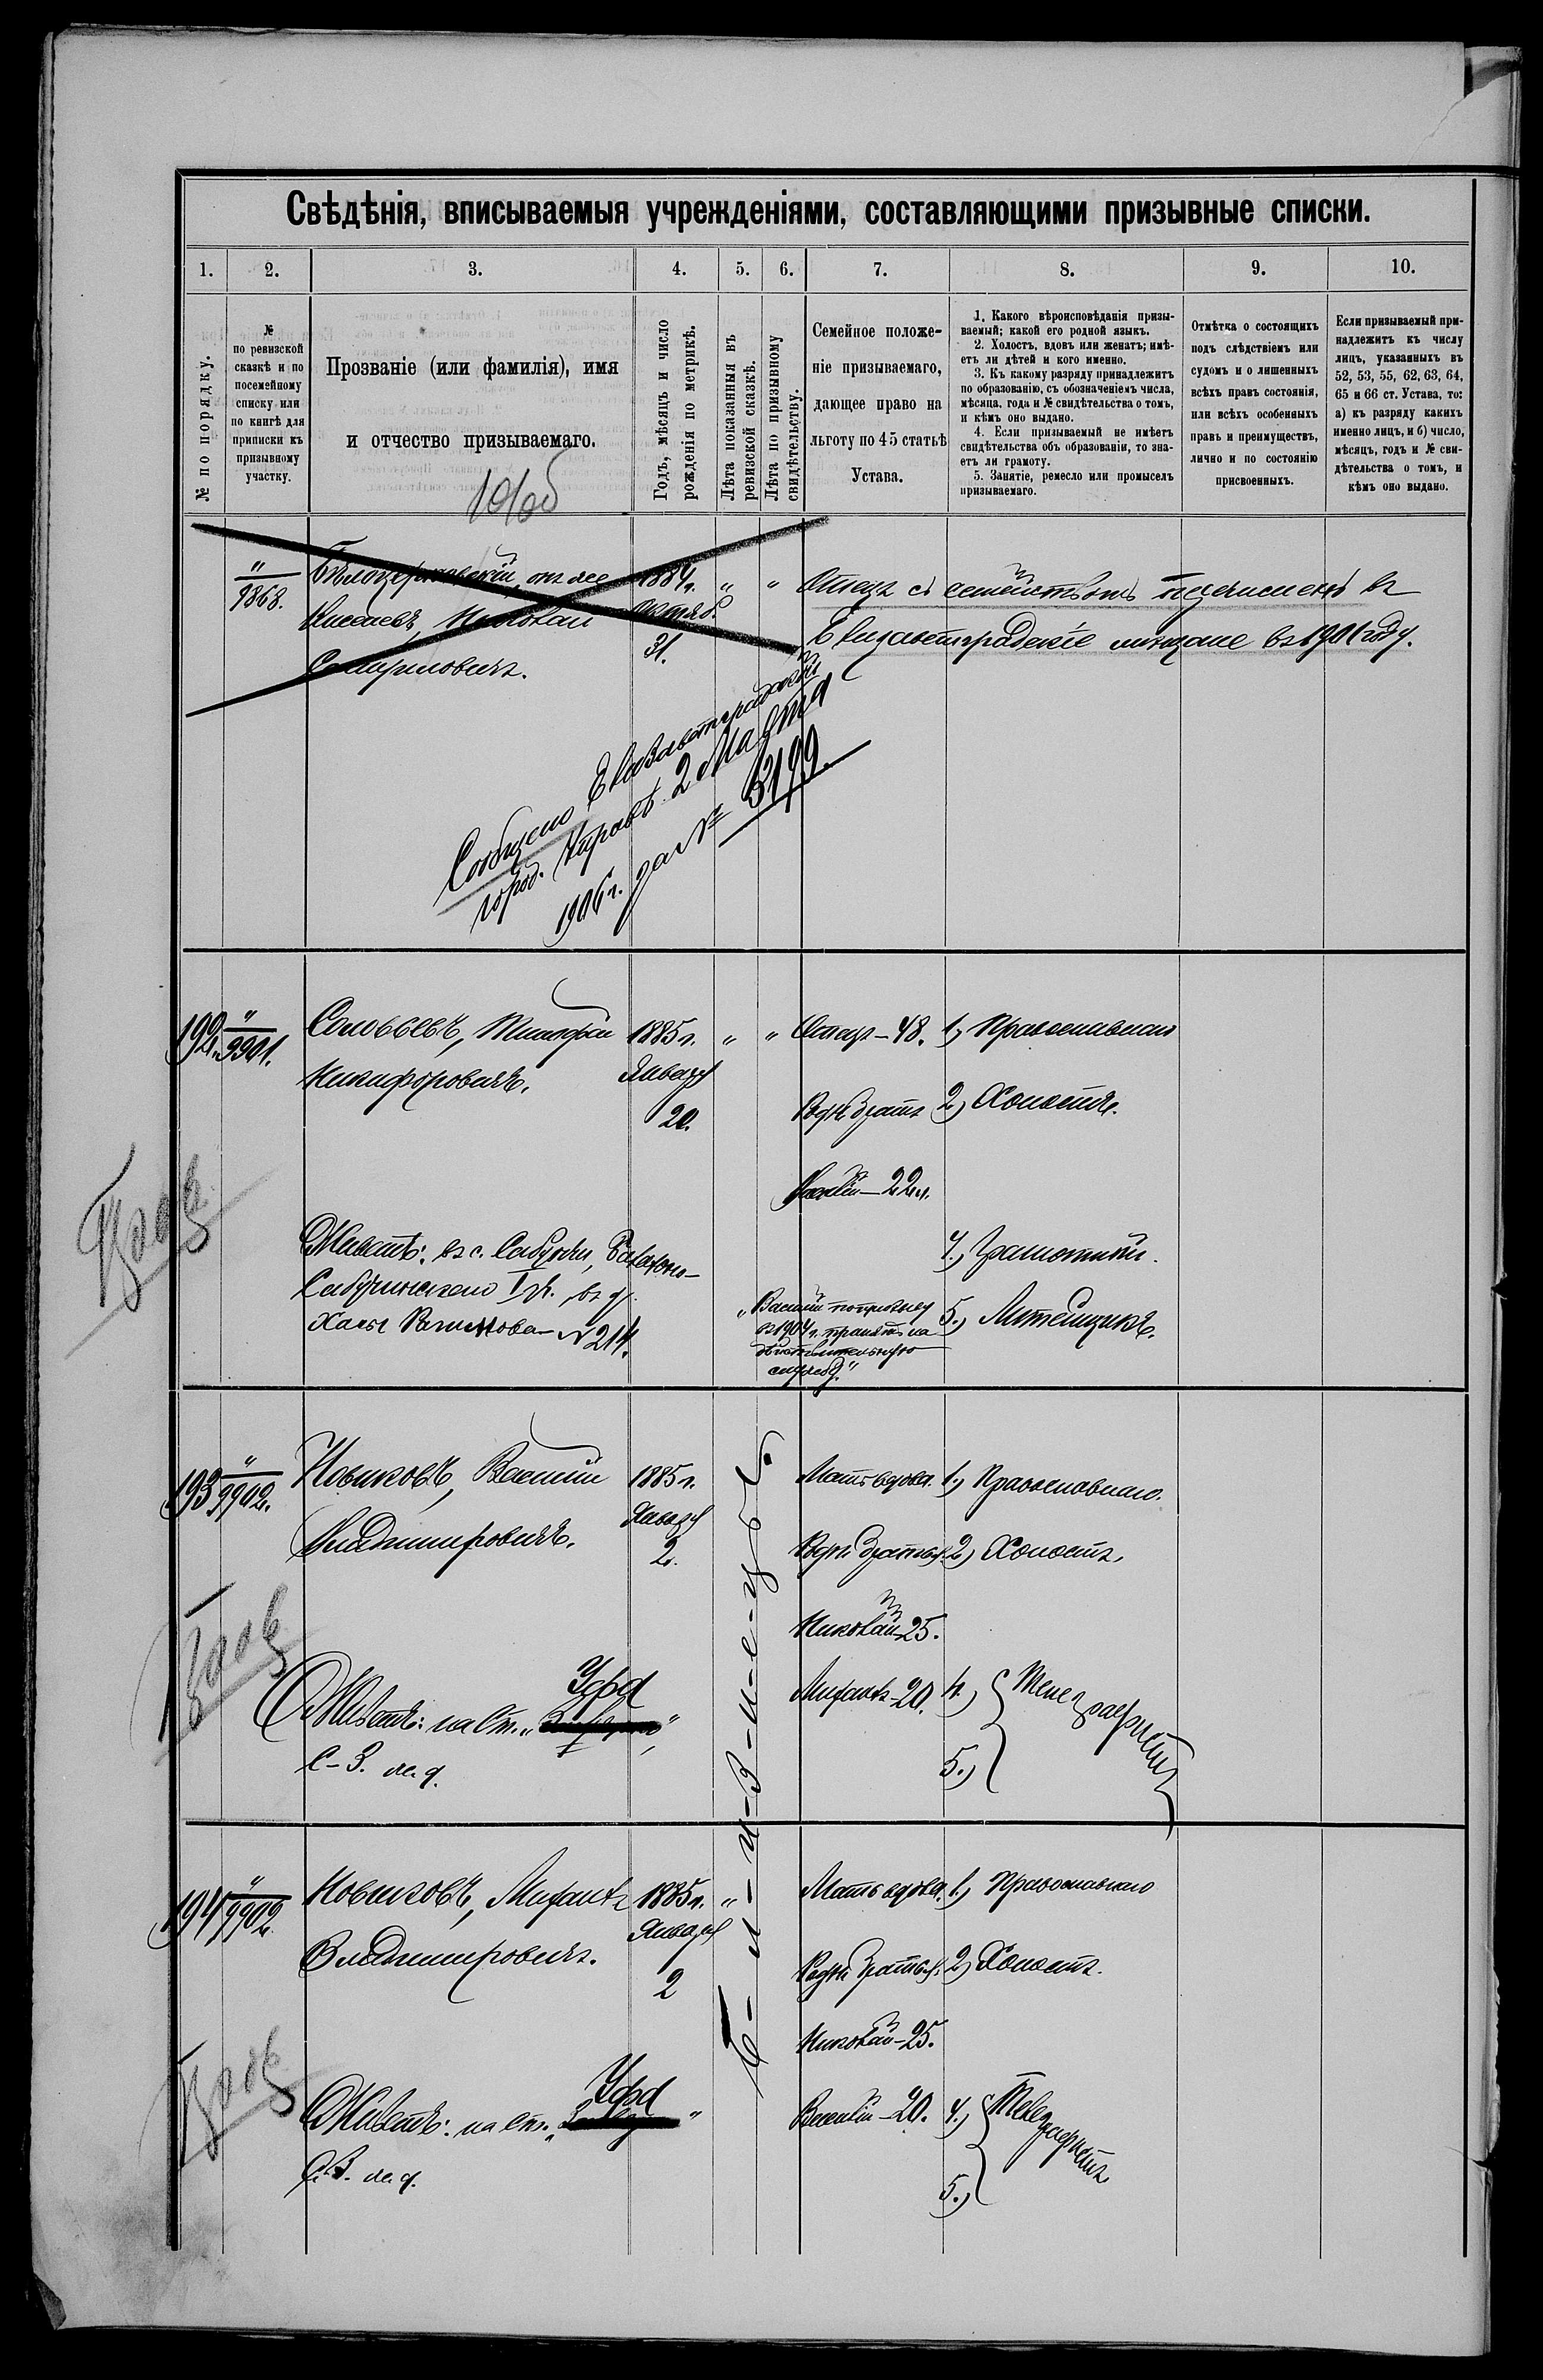 Свѣдѣнія, вписываемыя учрежденіями, составляющими призывные списки.
1. 2. 3. 4. 5. 6. 7. 8. 9. 10.
№ по порядку.
№
по ревизской
сказкѣ и по
посемейному
списку или
по книгѣ для
приписки къ
призывному
участку.
Прозваніе (или фамилія), имя
и отчество призываемаго.
Годъ, мѣсяцъ и число
рожденія по метрикѣ.
Лѣта показанныя въ
ревизской сказкѣ.
Лѣта по призывному
свидѣтельству.
Семейное положе-
ніе призываемаго,
дающее право на
льготу по 45 статьѣ
Устава.
1. Какого вѣроисповѣданія призы-
ваемый; какой его родной языкъ.
2. Холостъ, вдовъ или женатъ; имѣ-
етъ ли дѣтей и кого именно.
3. Къ какому разряду принадлежитъ
по образованію, съ обозначеніемъ числа,
мѣсяца, года и № свидѣтельства о томъ,
и кѣмъ оно выдано.
4. Если призываемый не имѣетъ
свидѣтельства объ образованіи, то зна-
етъ ли грамоту.
5. Занятіе, ремесло или промыселъ
призываемаго.
Отмѣтка о состоящихъ
подъ слѣдствіемъ или
судомъ и о лишенныхъ
всѣхъ правъ состоянія,
или всѣхъ особенныхъ
правъ и преимуществъ,
лично и по состоянію
присвоенныхъ.
Если призываемый при-
надлежитъ къ числу
лицъ, указанныхъ въ
52, 53, 55, 62, 63, 64,
65 и 66 ст. Устава, то:
а) къ разряду какихъ
именно лицъ, и б) число,
мѣсяцъ, годъ и № сви-
дѣтельства о томъ, и
кѣмъ оно выдано.
"
9868.
Бѣлоцерковскій, онъ же
1884 г.
октяб.
31.
" "
Отецъ съ семействомъ перечисленъ въ
Елисаветградскіе мѣщане въ 1901 году.
Сообщено Елисаветградской
город. Управѣ 2 Марта
1906 г. за № 3199.
192. "
9901.
Соловьевъ, Тимофей
Никифоровичъ.
1885 г.
Января
20.
" "
Отецъ-48.
Родн. братъ
Василій-22 л.
1.) Православнаго
2.) Холостъ.
4.) Грамотный.
5.) Литейщикъ.
Живетъ: въ с. Сабунчи, Балахано-
Сабунчинскаго I уч., въ д.
№ 214.
"Василій по призыву
въ 1904 г. принятъ на
дѣйствительную
службу."
193 "
9902.
Новиковъ, Василій
Владимировичъ.
1885 г.
Января
2.
Мать вдова.
Родн. братья:
Николай-25.
Михаилъ-20.
1.) Православнаго.
2.) Холостъ.
4.)
5.)
Телеграфистъ
Живетъ: на ст. "Уфа"
С-З. ж. д.
Б-л-и-з-н-е-ц-ы
194 "
9902.
Новиковъ, Михаилъ
Владимировичъ.
1885 г.
Января
2
"
Мать вдова.
Родн. братья:
Николай-25.
Василій-20.
1.) Православнаго
2.) Холостъ.
4.)
5.)
Телеграфистъ
Живетъ: на ст. "Уфа"
С.З. ж. д.